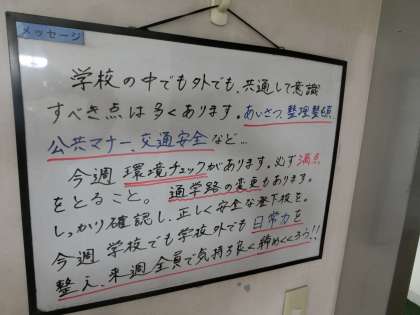 メッセージ
学校の中でも外でも、共通して意識
すべき点は多くあります。あいさつ、整理整とん、
公共マナー、交通安全など…
今週環境チェックがあります。必ず満点
をとること。通学路の変更もあります。
しっかり確認し、正しく安全な登下校を。
今週学校でも学校外でも日常力を
整え、来週全員で気持ち良く締めくくろう!!